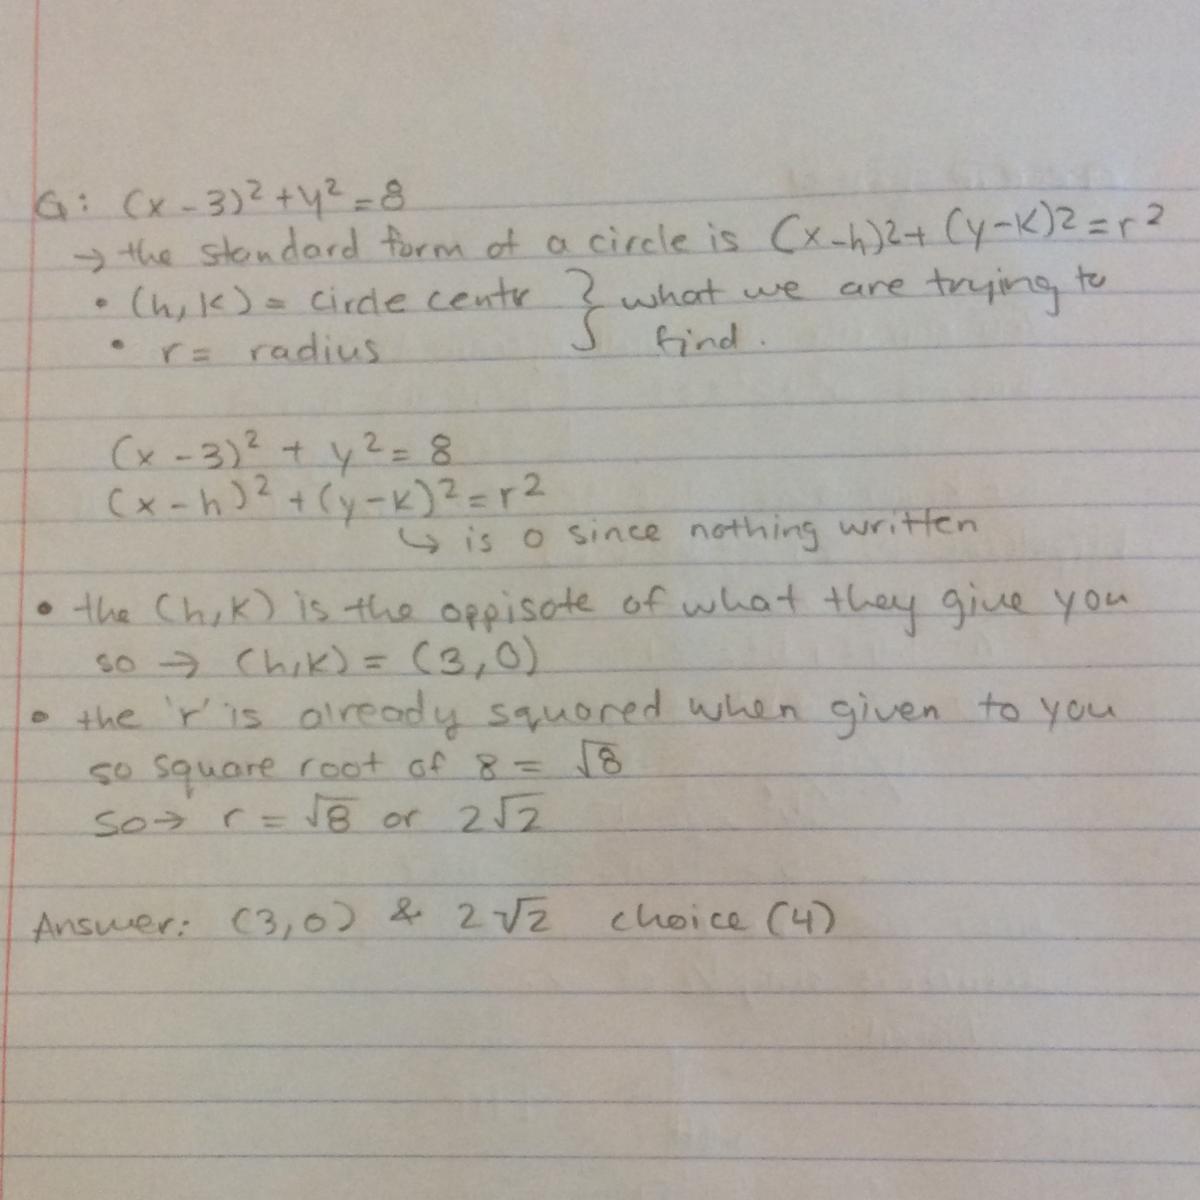 G: (x-3)² + y² = 8
→ the standard form of a circle is (x-h)2 + (y-k)2 = r²
• (h,k) = circle centr } what we are trying to
• r = radius find.
(x-3)² + y² = 8
(x-h)² + (y-k)² = r²
↳ is 0 since nothing written
• the (h,k) is the oppisote of what they give you
so → (h,k) = (3,0)
• the 'r' is already squared when given to you
so square root of 8 = √8
so → r = √8 or 2√2
Answer: (3,0) & 2√2 choice (4)